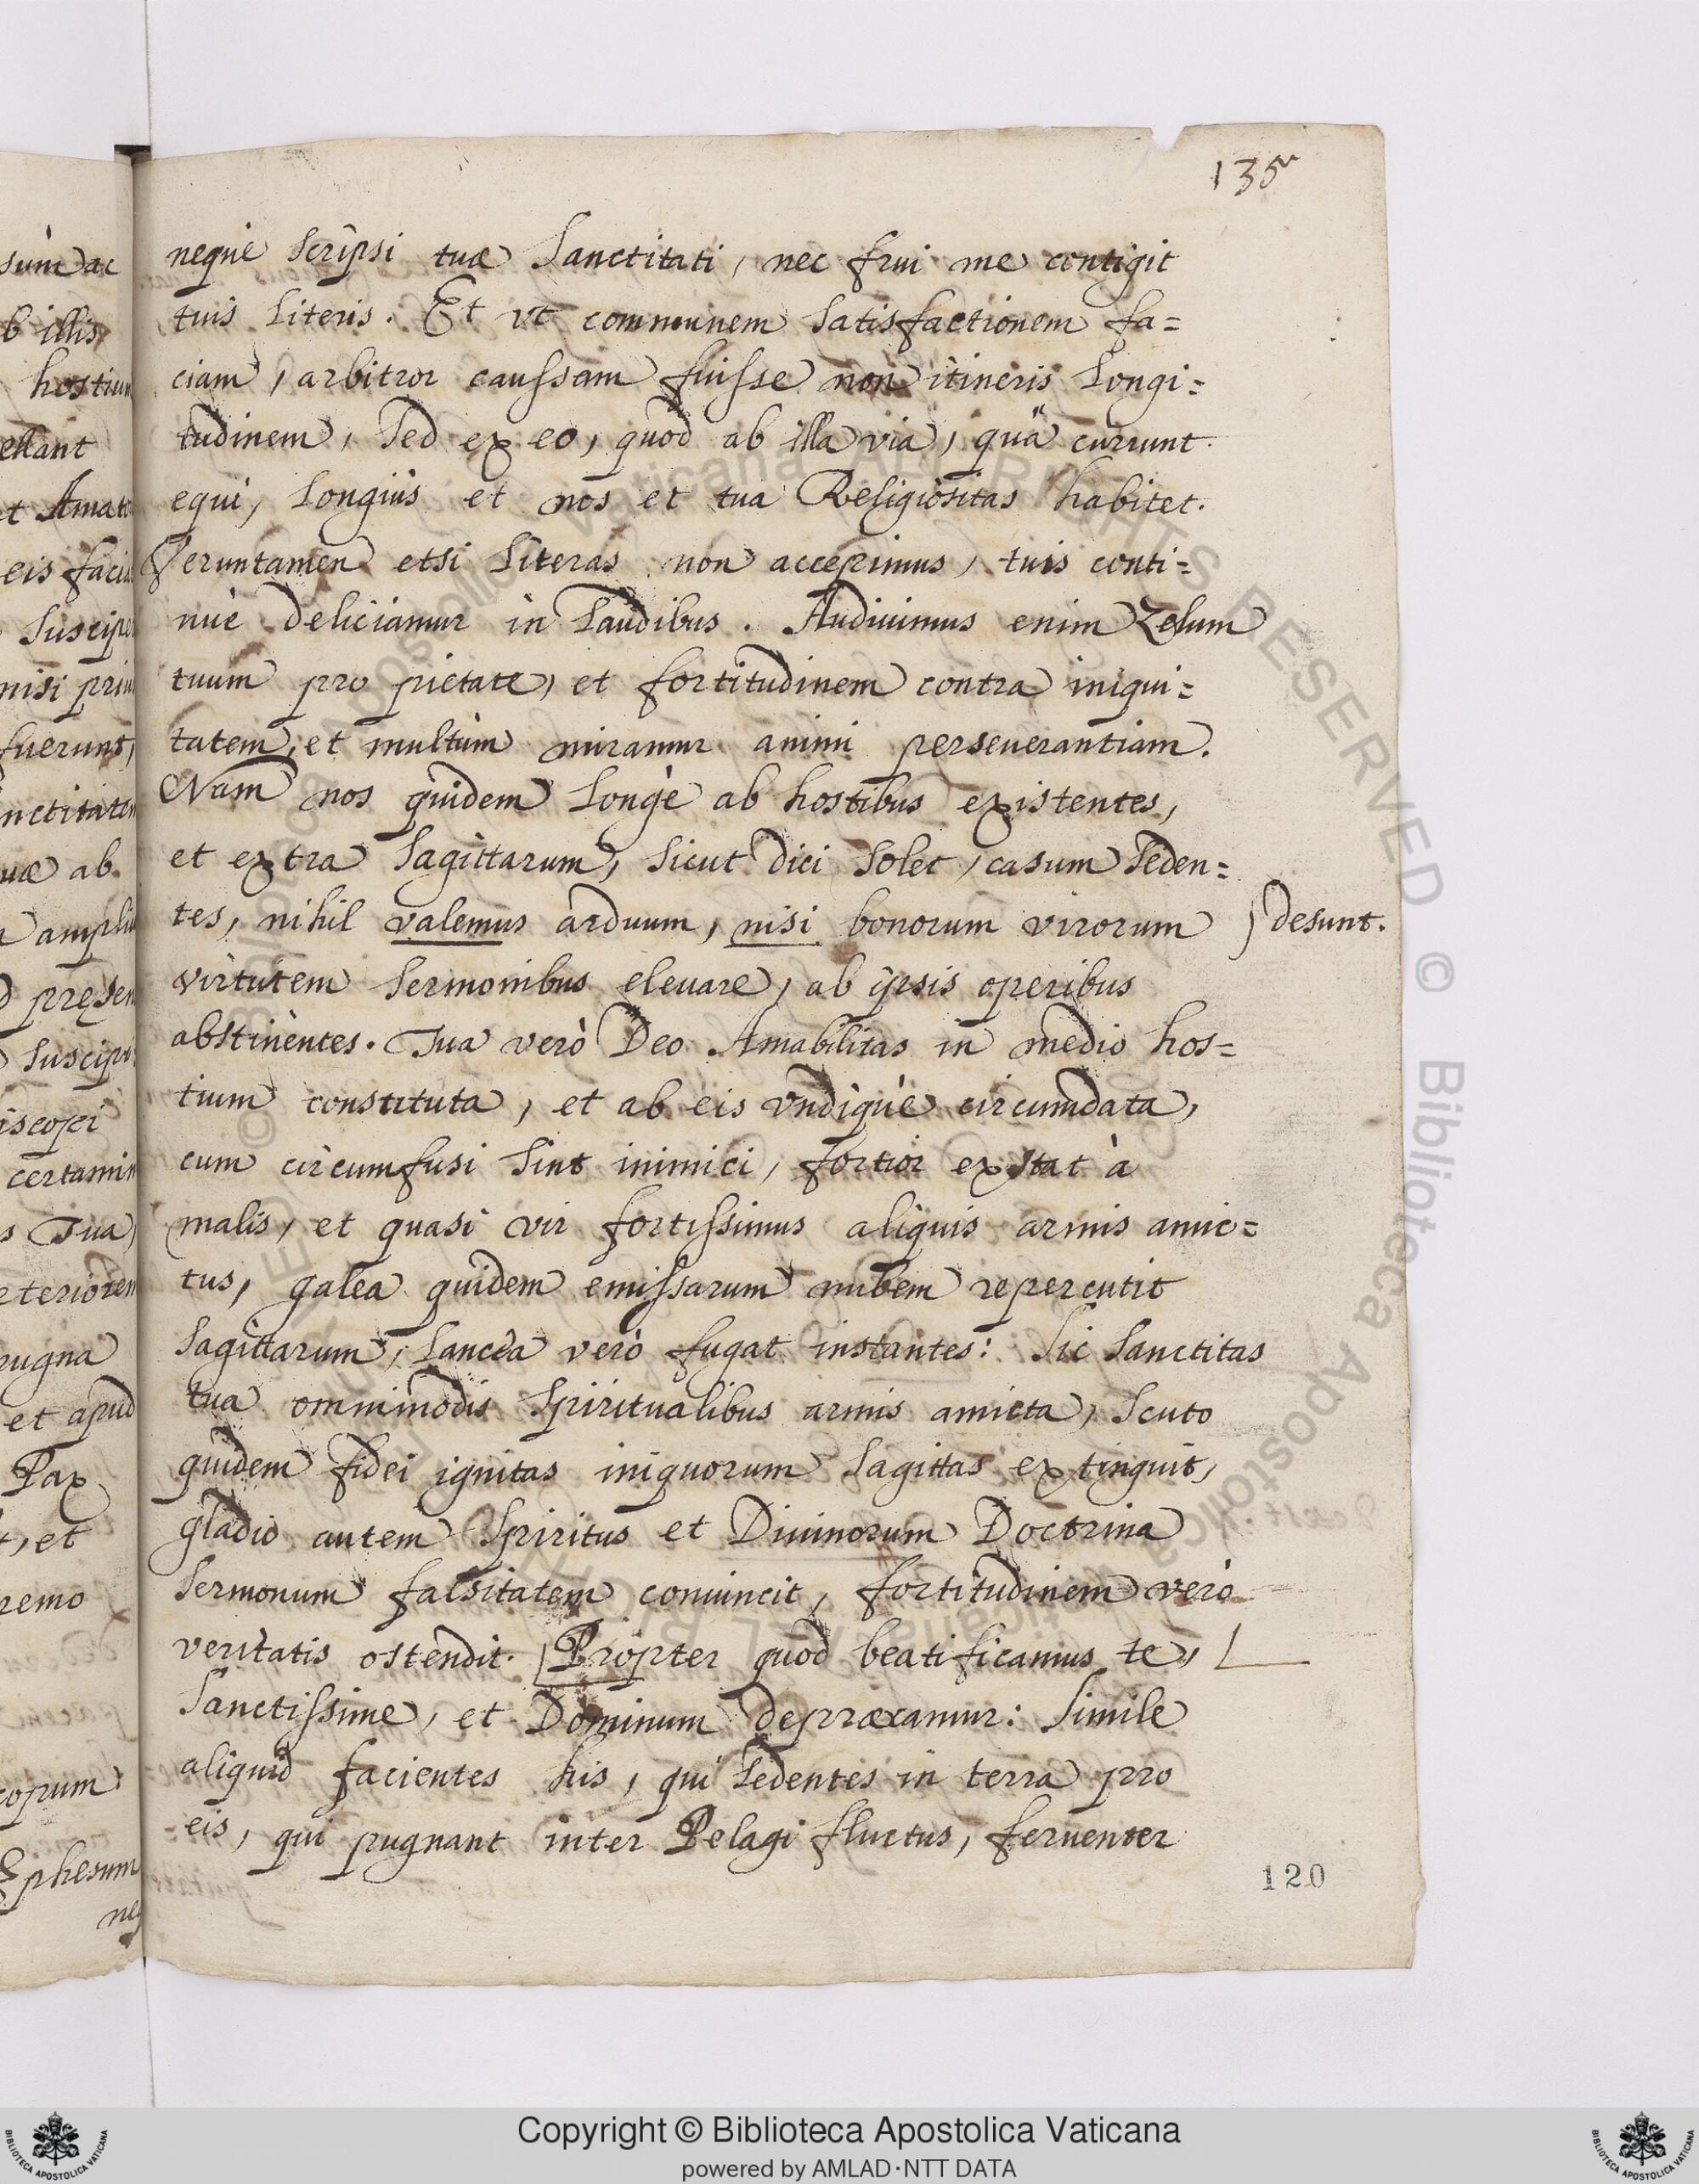 135
neque scripsi tuæ Sanctitati, nec frui me contigit
tuis literis. Et vt communem satisfactionem fa=
ciam, arbitror caussam fuisse non itineris longi=
tudinem, sed ex eo, quod ab illa via, quâ currunt
equi, longiùs et nos et tua Religiositas habitet.
Veruntamen etsi literas non accepimus, tuis conti=
nuè deliciamur in laudibus. Audiuimus enim Zelum
tuum pro pietate, et fortitudinem contra iniqui=
tatem, et multùm miramur animi perseuerantiam.
Nam nos quidem longè ab hostibus existentes,
et extra sagittarum, sicut dici solet, casum seden=
tes, nihil valemus arduum, nisi bonorum virorum
desunt.
virtutem sermonibus eleuare, ab ipsis operibus
abstinentes. Tua verò Deo Amabilitas in medio hos=
tium constituta, et ab eis vndique circumdata,
cum circumfusi sint inimici, fortior exstat à
malis, et quasi vir fortissimus aliquis armis amic=
tus, galea quidem emissarum nubem repercutit
sagittarum, lancea verò fugat instantes: sic Sanctitas
tua omnimodis spiritualibus armis amicta, scuto
quidem fidei ignitas iniquorum sagittas extinguit,
gladio autem Spiritus et Diuinorum Doctrina
sermonum falsitatem conuincit, fortitudinem verò
veritatis ostendit. Propter quod beatificamus te,
Sanctissime, et Dominum depræcamur: simile
aliquid facientes his, qui sedentes in terra pro
eis, qui pugnant inter Pelagi fluctus, feruenter
120
sùm ac
b illis
hostium
ellant
t Amato
eis faci
suscipe
nisi priu
fuerunt,
nctitatem
uæ ab
ampliu
præsen
suscipi
iscopi
certamin
s Tua
rteriorem
pugna
et apud
Pax
t, et
remo
copum
Ephesum
neq
Copyright © Biblioteca Apostolica Vaticana
powered by AMLAD·NTT DATA